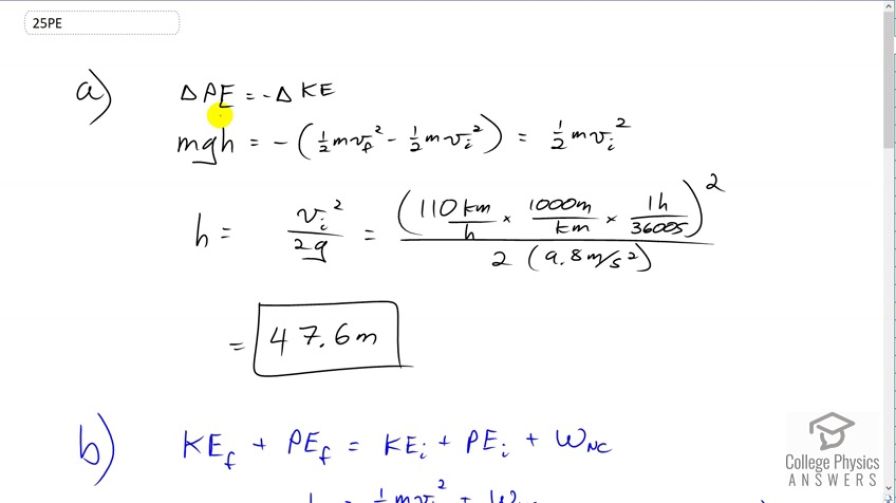 25PE
a) ΔPE = -ΔKE
mgh = -(½mv_f² - ½mv_i²) = ½mv_i²
h = v_i²/2g = (110 km/h × 1000m/km × 1h/3600s)² / 2(9.8m/s²)
= 47.6m
b) KE_f + PE_f = KE_i + PE_i + W_NC
College Physics
ANSWERS